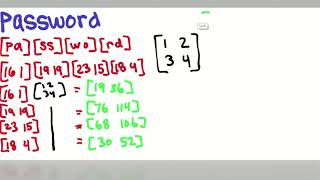 Password
[Pa] [ss] [wo] [rd]
[16 1] [19 19] [23 15] [18 4]
[1 2
3 4]
[16 1] [1 2
3 4] = [19 36]
[19 19] = [76 114]
[23 15] = [68 106]
[18 4] = [30 52]